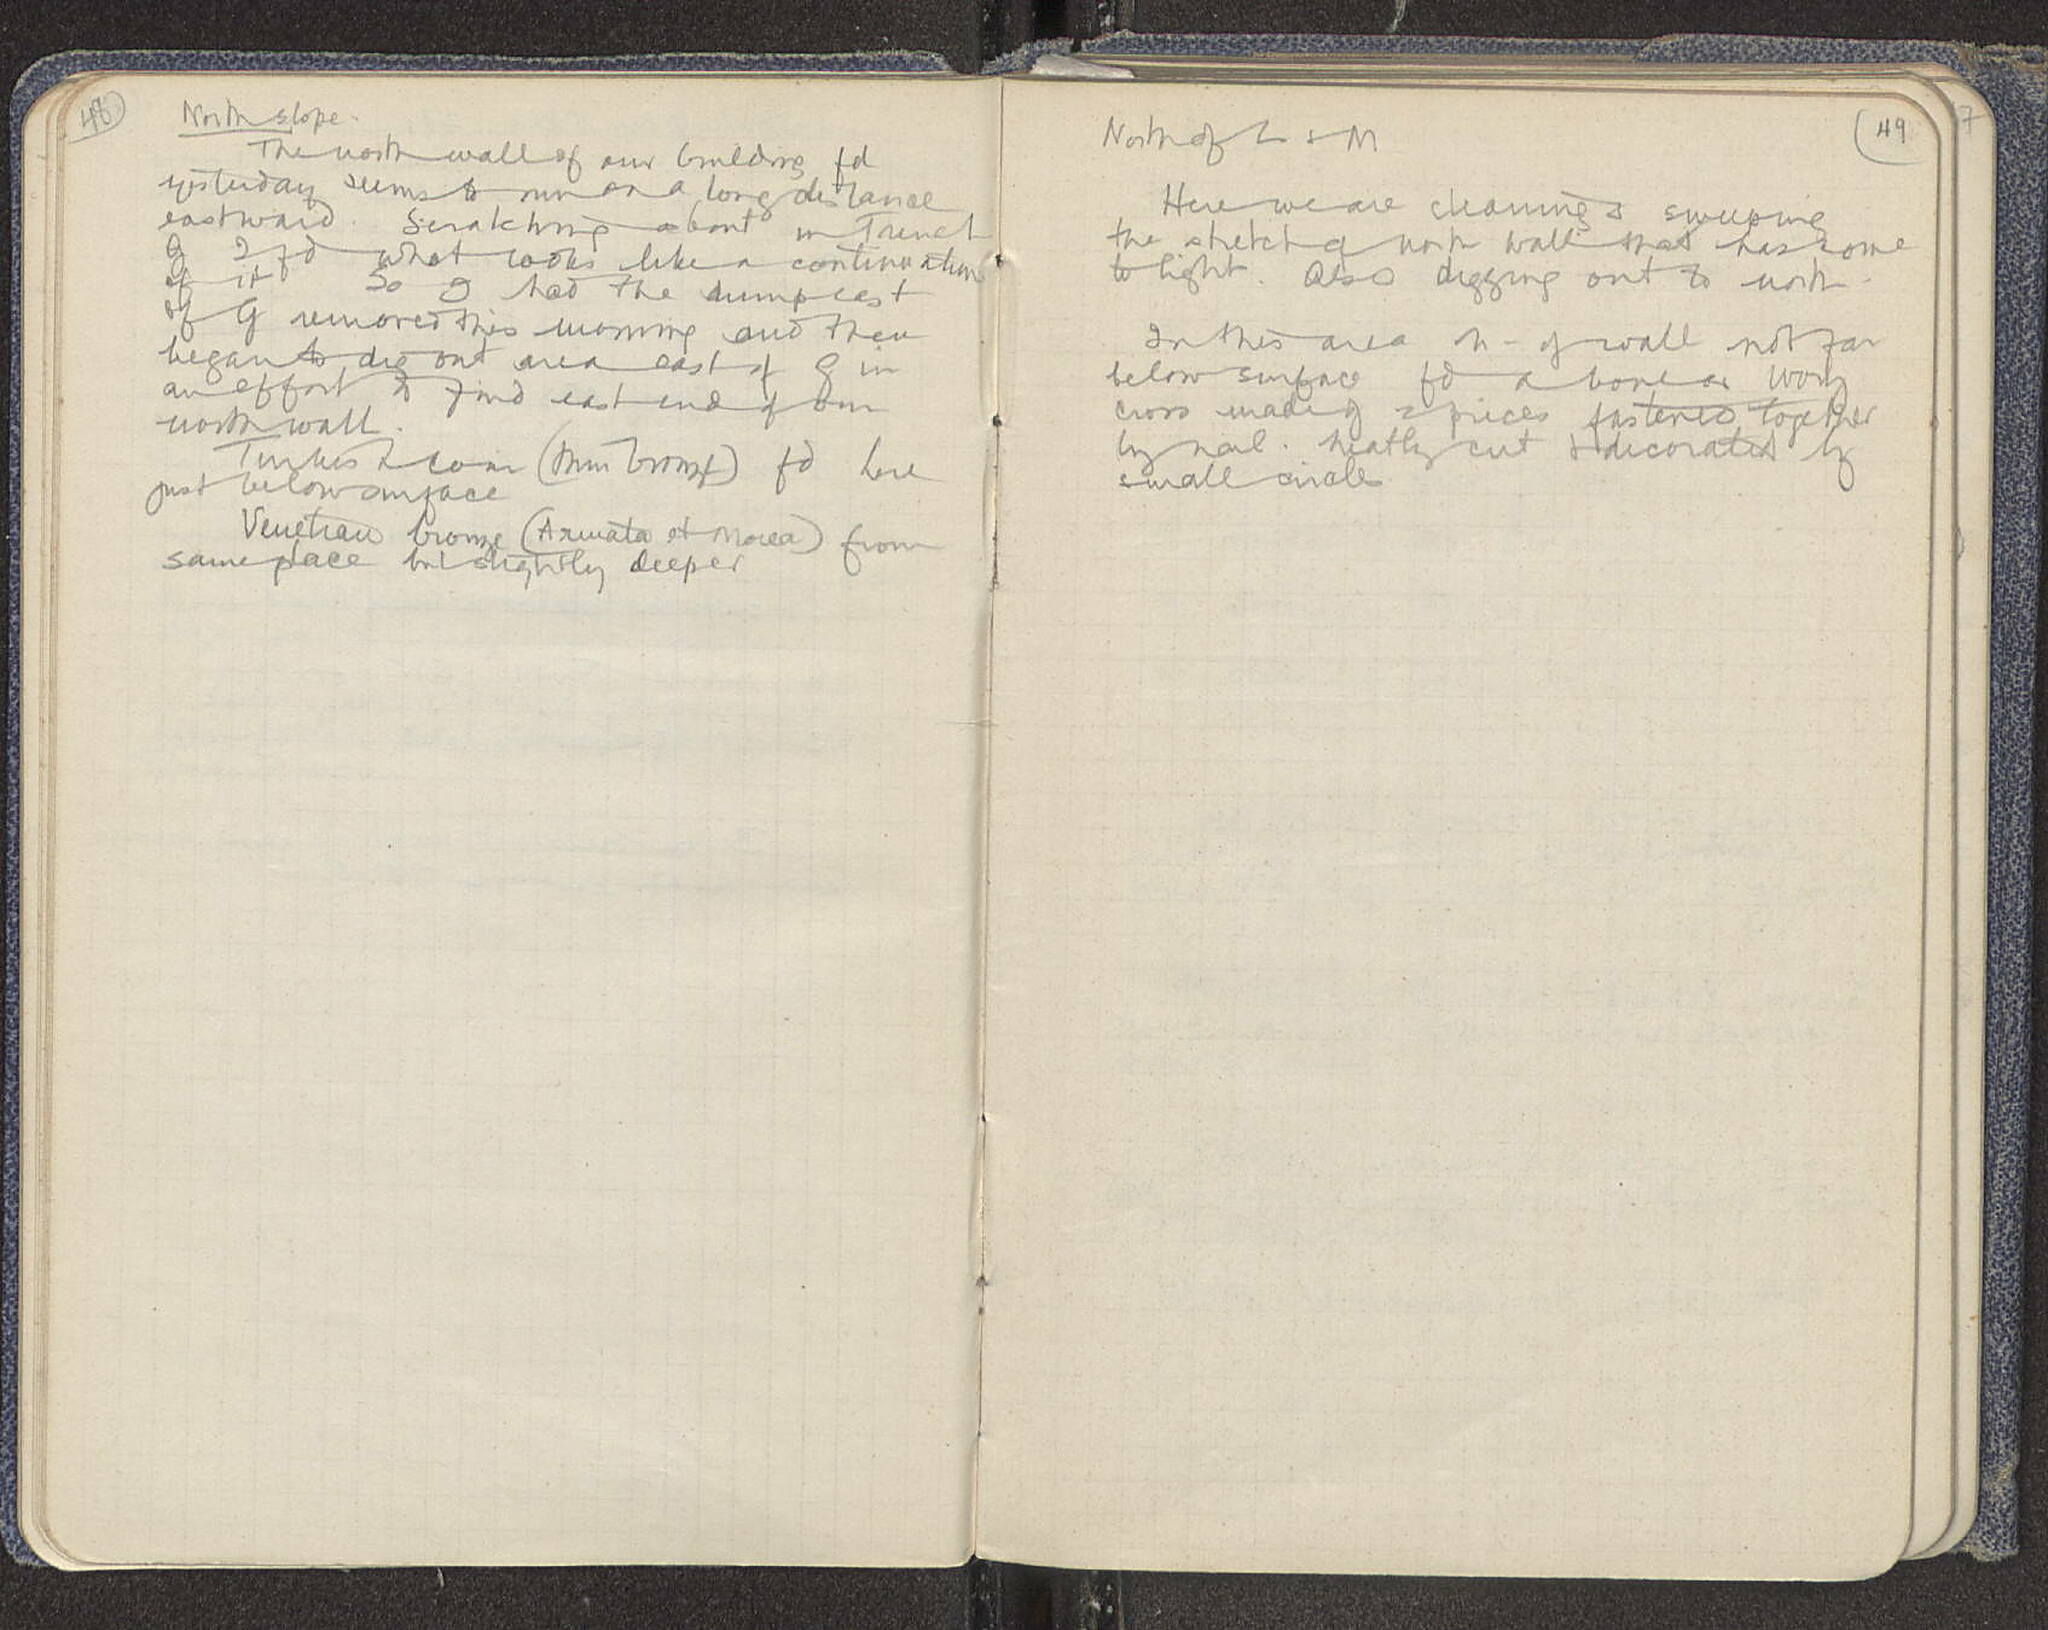 48
North slope.
The north wall of our building fd
yesterday seems to run on a long distance
eastward. Scratching about in Trench
G I fd what looks like a continuation
of it So I had the dump east
of G removed this morning and then
began to dig out area east of G in
an effort to find east end of our
north wall.
Turkish coin (thin bronze) fd here
just below surface
Venetian bronze (Armata et Morea) from
same place but slightly deeper
49
7
North of L & M
Here we are cleaning & sweeping
the stretch of north wall that has come
to light. Also digging out to north.
In this area n- of wall not far
below surface fd a bone or ivory
cross made of 2 pieces fastened together
by nail. neatly cut & decorated by
small circles